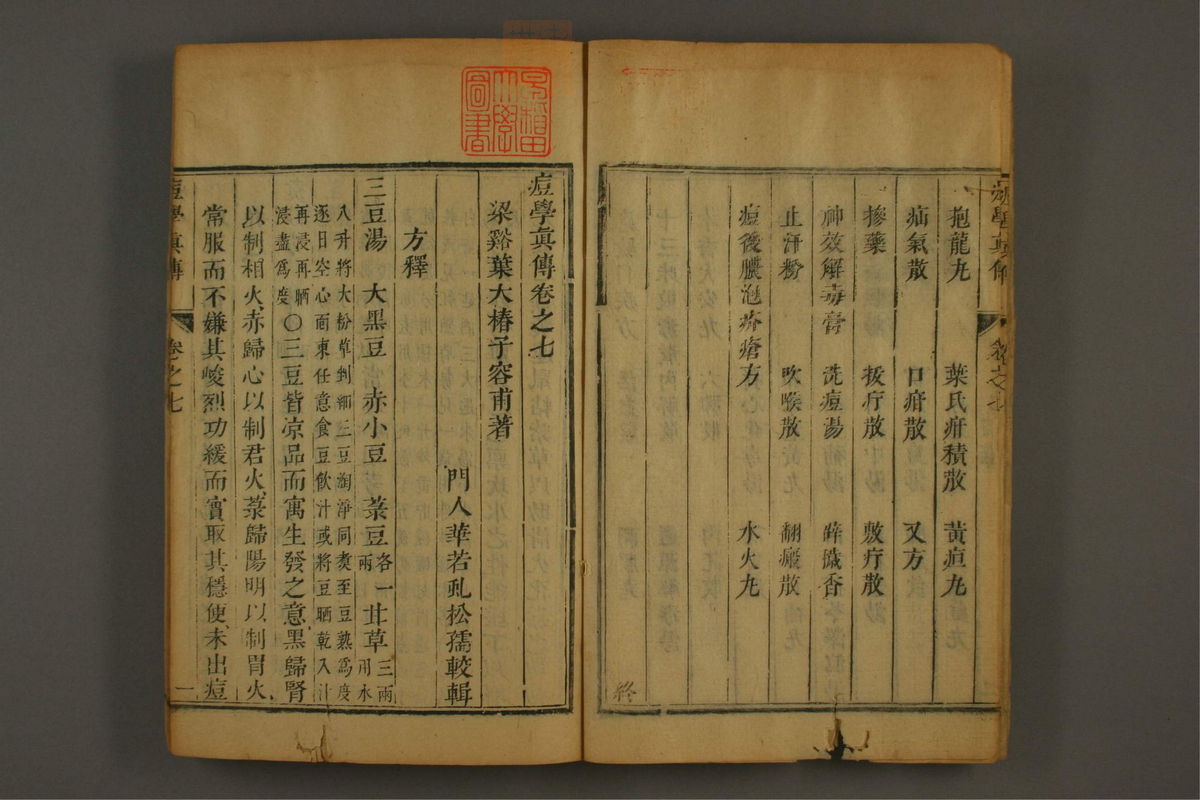 抱龍丸 葉氏疳積散 黃疸丸
疝氣散 口疳散 又方
摻藥 拔疔散 敷疔散
神效解毒膏 洗痘湯 辟穢香
止汗粉 吹喉散 翻癜散
痘後膿泡疥瘡方 水火丸
終
早稻田大學圖書
痘學眞傳卷之七
梁谿葉大椿子容甫著
門人華若虬松孺較輯
方釋
三豆湯 大黑豆 赤小豆 菉豆各一兩 甘草三兩用水
八升將大粉草剉細三豆淘淨同煑至豆熟爲度
逐日空心面東任意食豆飮汁或將豆晒乾入汁
再浸再晒浸盡爲度〇三豆皆凉品而寓生發之意黑歸腎
以制相火赤歸心以制君火菉歸陽明以制胃火
常服而不嫌其峻烈功緩而實取其穩便未出痘
痘學眞傳 卷之七 一